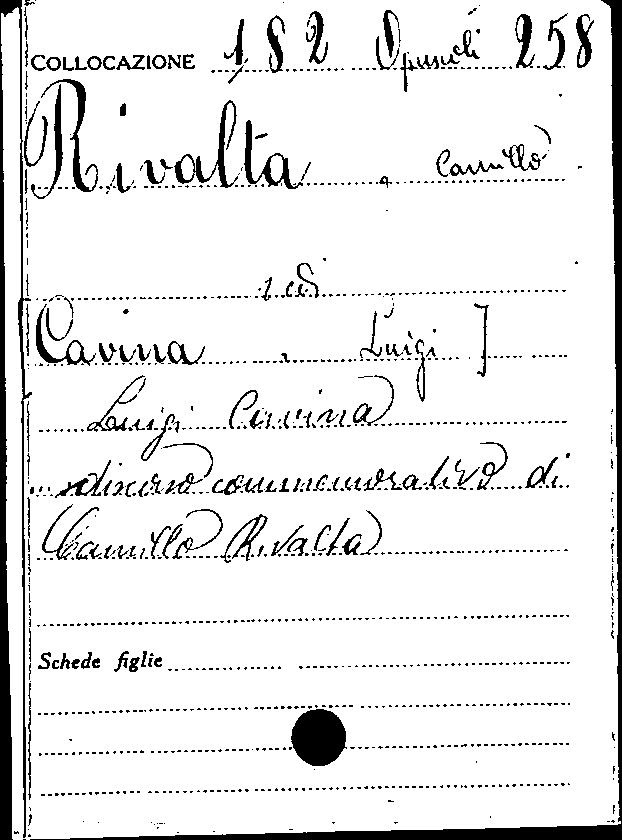 COLLOCAZIONE 182 Opuscoli 258
Rivalta, Camillo.
Cavina, Luigi ]
Luigi Cavina
discorso commemorativo di
Camillo Rivalta
Schede figlie